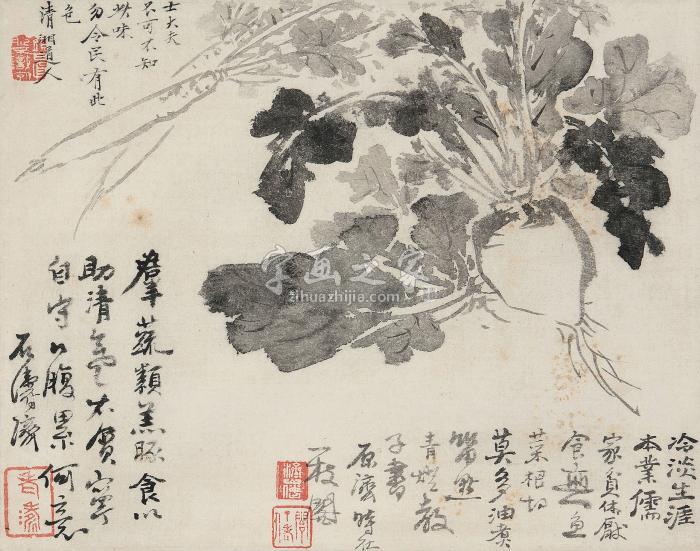 士大夫
不可不知
此味
勿令民有此
色
清湘道人
字画之家
zihuazhijia.com
冷淡生涯
本業儒
家貧休厭
食無魚
菜根切
莫多油煮
留點
青燈教
子書
原濟時在
一枝閣
蔬類羔豚食以
助清氣寧
自守口腹累何
石濤濟